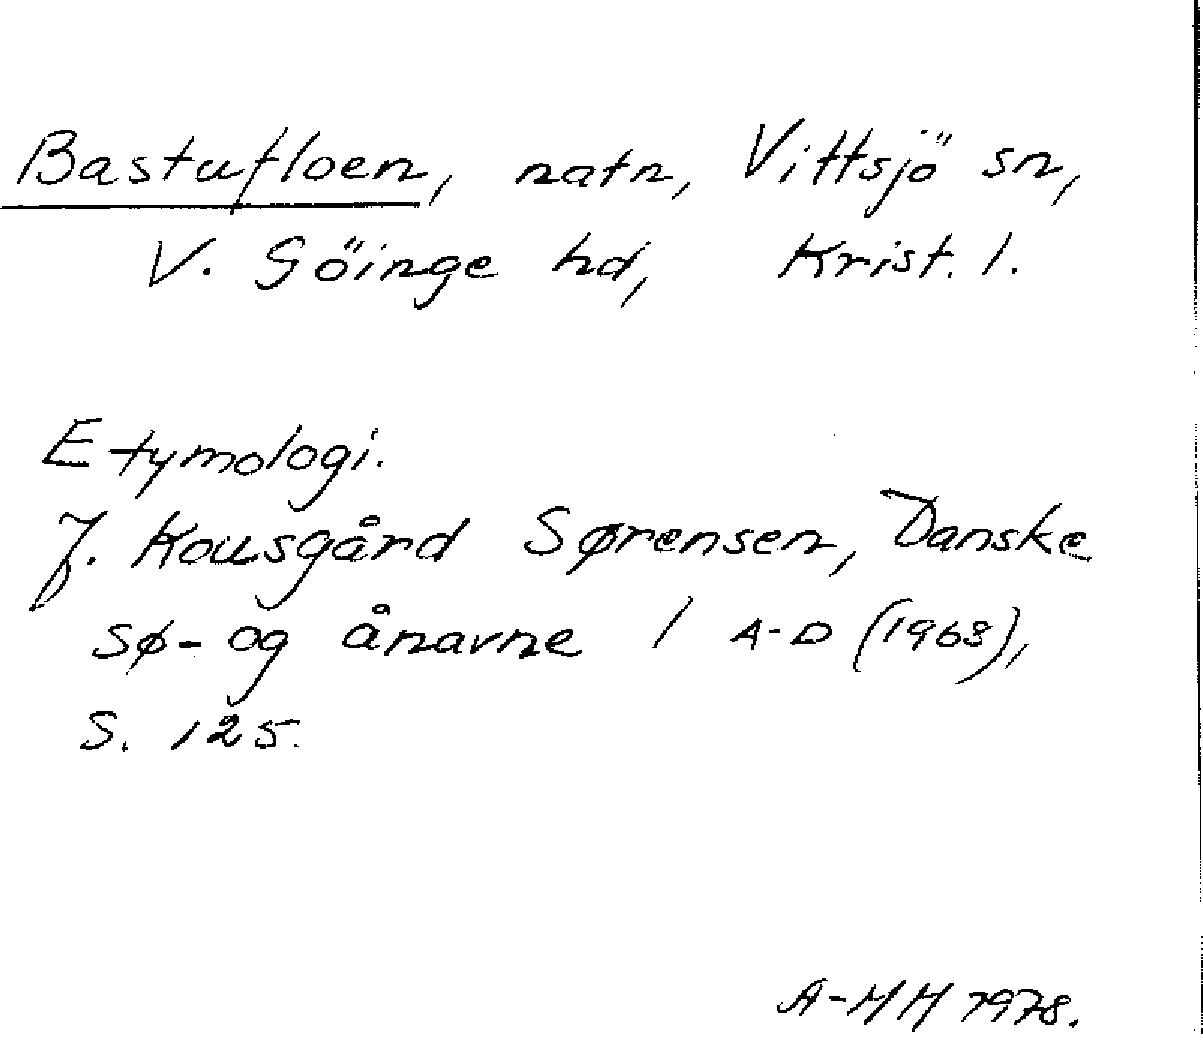 Bastufloen, natn, Vittsjö sn,
V. Göinge hd, Krist. l.
Etymologi.
J. Kousgård Sørensen, Danske
sø- og ånavne 1 A-D (1968),
S. 125.
A-MH 1978.